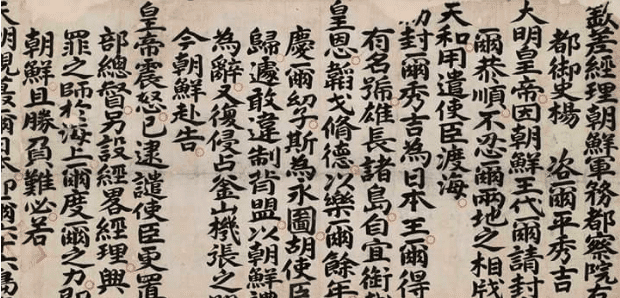 欽差經理朝鮮軍務都察院右
都御史楊 咨爾平秀吉
大明皇帝因朝鮮王代爾請封
爾恭順不忍爾兩地之相戕
天和用遣使臣渡海
勅封爾秀吉為日本王爾得
有名號雄長諸島自宜銜
皇恩韜戈脩德以樂爾餘年
慶爾幼子斯為永圖胡使臣
歸遽敢違制背盟以朝鮮禮
為辭又復侵占釜山機張之
今朝鮮赴告
皇帝震怒已逮譴使臣更置
部總督另設經畧經理興
罪之師於海上爾度爾之力即
朝鮮且勝負難必若
大明視蕞爾日本即爾六十六島